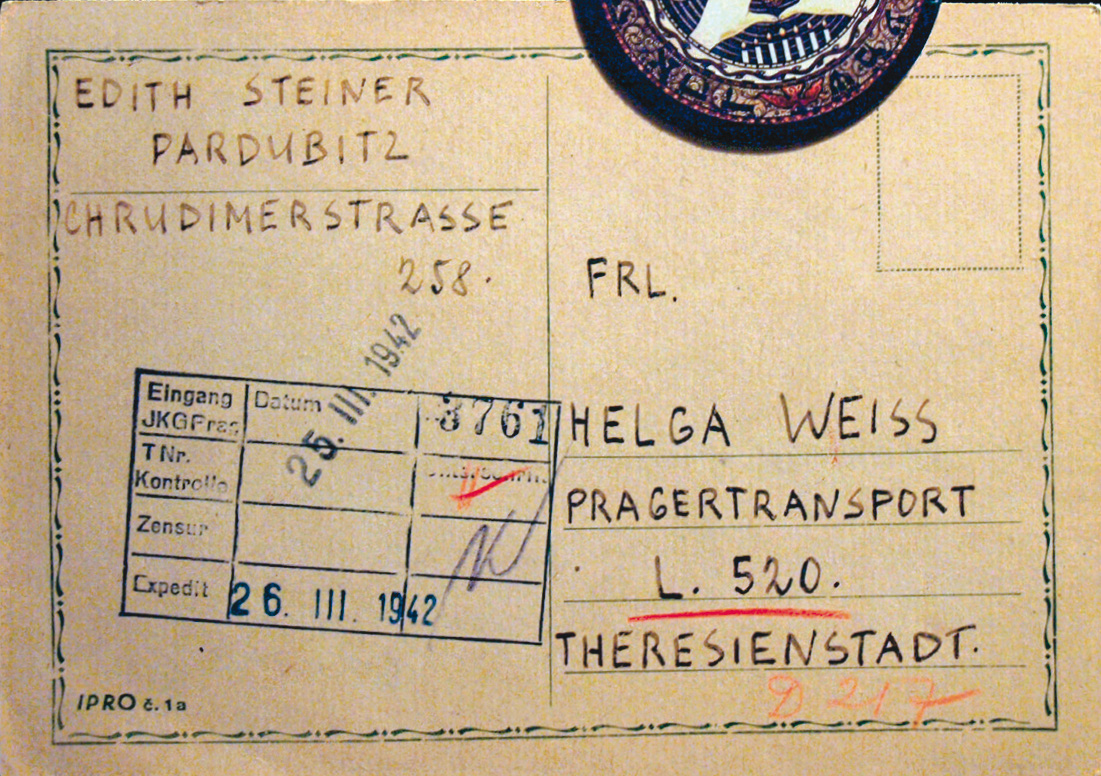 EDITH STEINER
PARDUBITZ
CHRUDIMERSTRASSE
258.
25. III. 1942
Eingang
JKGPrag
Datum
3761
T Nr.
Kontrolle
Zensur
Expedit
26. III. 1942
IPRO č. 1a
FRL.
HELGA WEISS
PRAGERTRANSPORT
L. 520.
THERESIENSTADT.
D 217